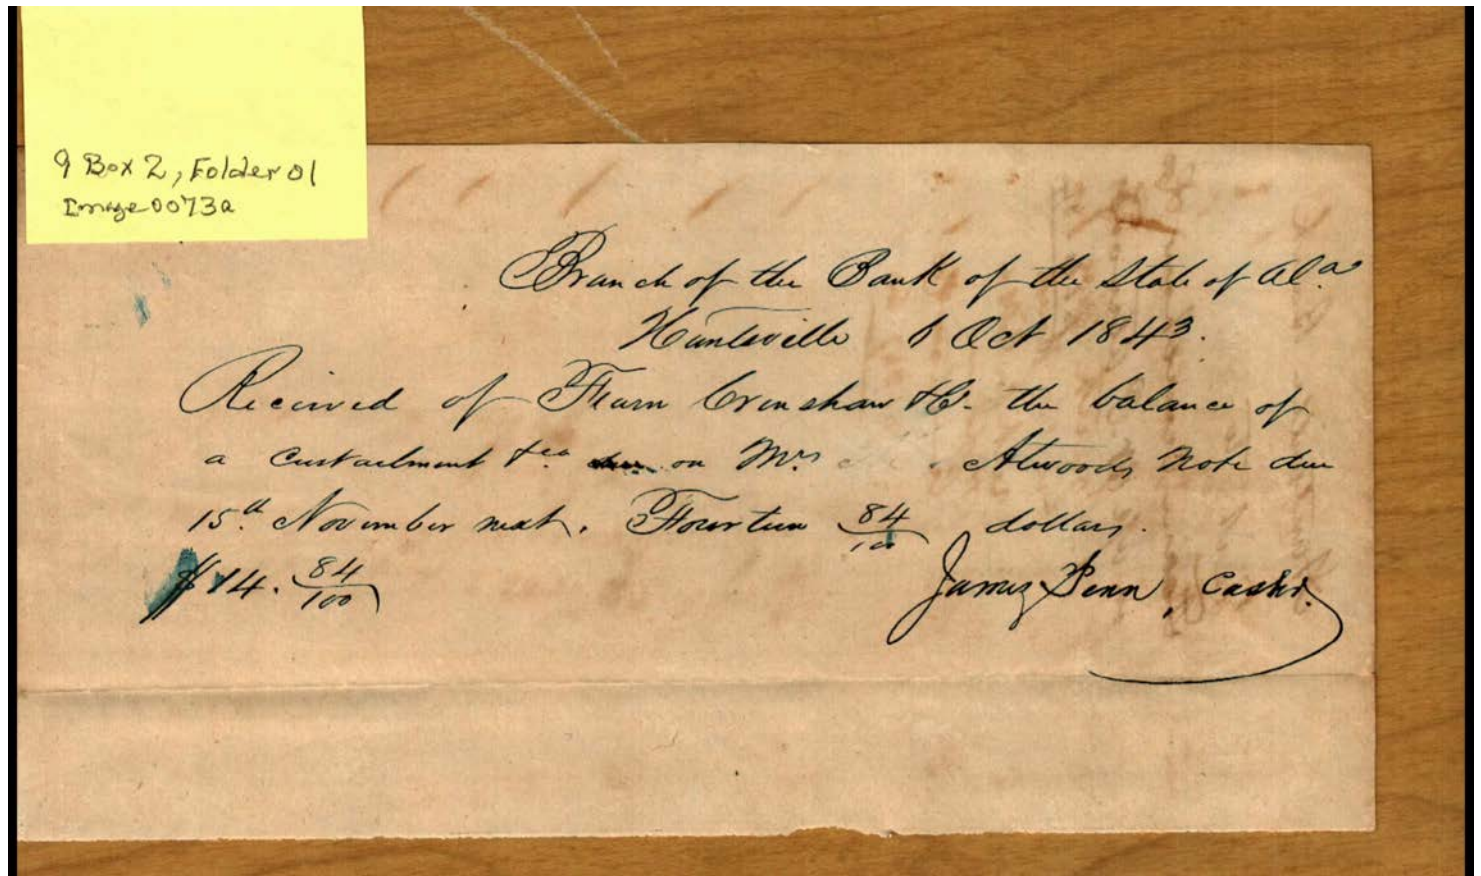 9 Box 2, Folder 01
Image 0073a
Branch of the Bank of the State of Ala
Huntsville 6 Oct 1843.
Received of Fearn Crenshaw & Co. the balance of
a curtailment &ca on Mrs Atwoods Note due
15th November next. Fourteen 84/100 dollars.
$14. 84/100
James Penn, Cashr.